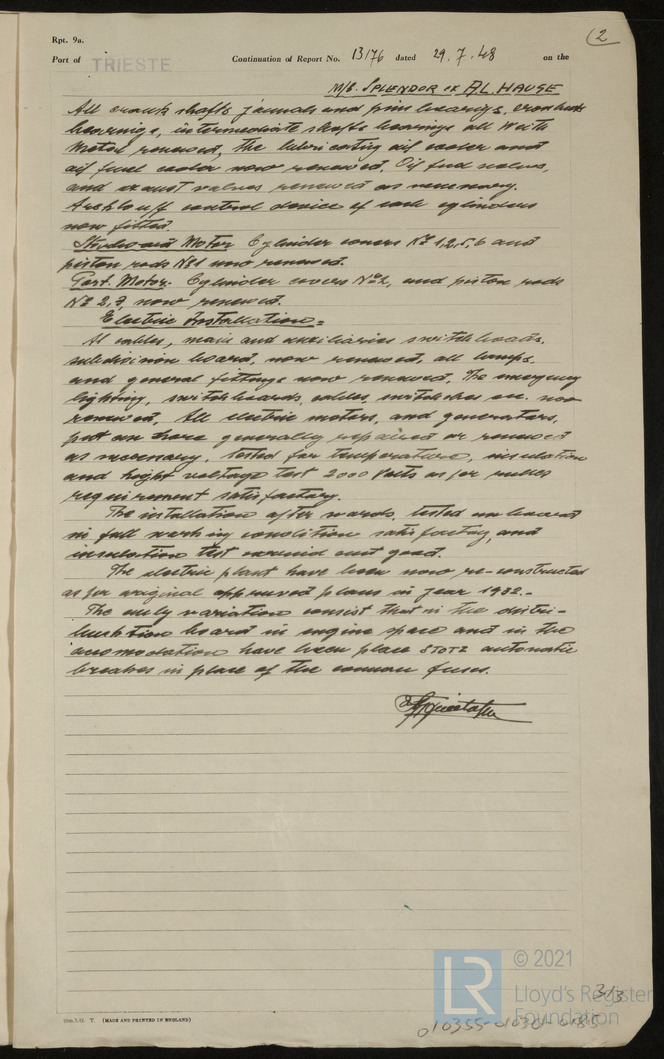 Rpt. 9a.
2
Port of TRIESTE Continuation of Report No. 13176 dated 29.7.48 on the
M/S. SPLENDOR ex AL. HAUSE
All crank shafts journals and pins bearings, cross heads
bearings, intermediate shafts bearings all with
Metal renewed, the lubricating oil cooler and
oil fuel cooler now renewed. Oil fuel valves,
and exaust valves renewed as necessary.
control device of each cylinders
now fitted.
Motor Cylinder covers Nº 1,2,5,6 and
piston rods Nº1 now renewed.
Port. Motor. Cylinder covers Nº2, and piston rods
Nº 2,7, now renewed.
Electric Installation=
Al cables, main and auxiliaries switchboards,
subdivision board, now renewed, all lamps,
and general fittings now renewed. The emergency
lighting, switchboards, cables, switches ec. now
renewed. All electric motors, and generators,
put on have generally repaired or renewed
as necessary, tested for temperature, insulation
and hight voltage test 2000 Volts as per rules
requirement satisfactory.
The installation after wards, tested on board
in full working condition satisfactory, and
insulation test carried out good.
The electric plant have been now re-constructed
as per original approved plans in year 1932.-
The only variation consist that in the distri-
bution board in engine space and in the
accomodation have been place STOTZ automatic
breakes in place of the common fuses.
(MADE AND PRINTED IN ENGLAND)
© 2021
Lloyd's Register
Foundation
LR
3/3
010355-010364-0185